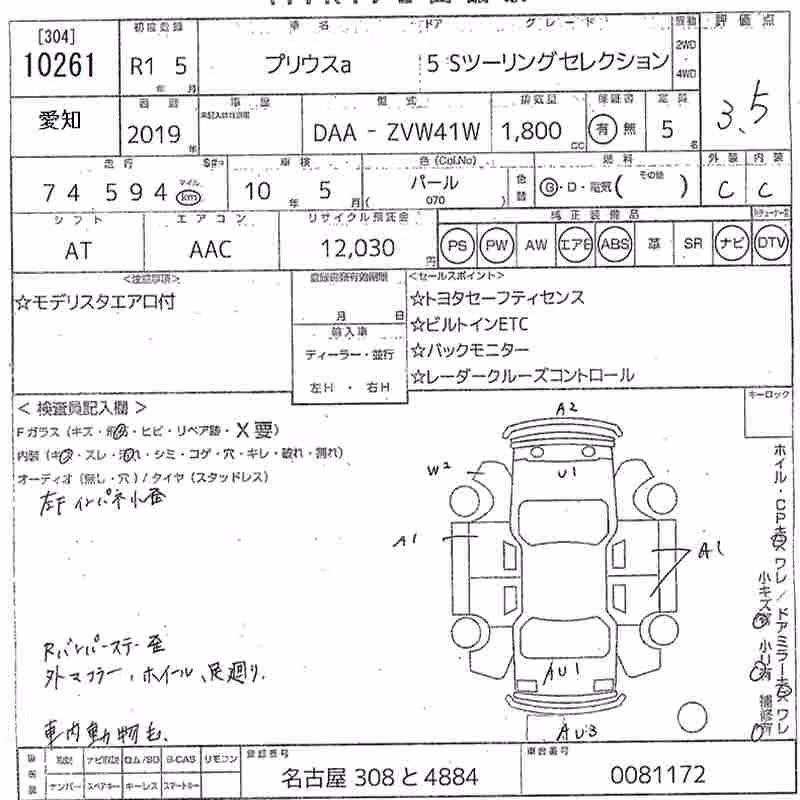 [304]
10261
初度登録
R1 5
年 月
車名
プリウスa
ドア
5
グレード
Sツーリングセレクション
2WD
4WD
評価点
3.5
愛知
2019
年
車歴
型式
DAA - ZVW41W
排気量
1,800
cc
保証書
有 無
定員
5
名
走行
74594
マイル
km
車検
10 年 5 月
色(Col.No)
パール
( 070 )
色替
燃料
G・D・電気( その他 )
外装
C
内装
C
シフト
AT
エアコン
AAC
リサイクル預託金
12,030
円
純正装備品
PS PW AW エアB ABS 革 SR ナビ DTV
<注意事項>
☆モデリスタエアロ付
月 日
輸入車
ディーラー・並行
左H ・ 右H
<セールスポイント>
☆トヨタセーフティセンス
☆ビルトインETC
☆バックモニター
☆レーダークルーズコントロール
キーロック
< 検査員記入欄 >
Fガラス (キズ・ ・ヒビ・リペア跡・X要)
内装 (キズ・スレ・汚れ・シミ・コゲ・穴・キレ・破れ・割れ)
オーディオ (無し・穴) / タイヤ (スタッドレス)
左Fインパネ小歪
Rバンパーステー歪
外マフラー、ホイール、足廻り.
車内動物毛.
A2
U1
W2
A1
A1
AU1
AU3
ホイル・CPキズ ワレ / ドアミラーキズ ワレ
登録番号
名古屋 308 と 4884
車台番号
0081172
ナビ取説
ロム/SD
B-CAS
リモコン
ナンバー
スペアキー
キーレス
スマートキー